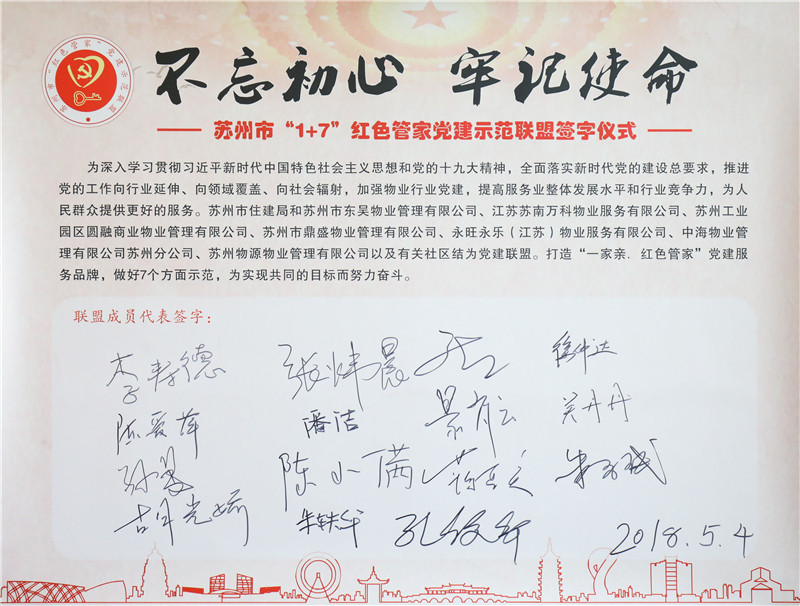 苏州市“红色管家”党建示范联盟
不忘初心 牢记使命
苏州市“1+7”红色管家党建示范联盟签字仪式
为深入学习贯彻习近平新时代中国特色社会主义思想和党的十九大精神，全面落实新时代党的建设总要求，推进
党的工作向行业延伸、向领域覆盖、向社会辐射，加强物业行业党建，提高服务业整体发展水平和行业竞争力，为人
民群众提供更好的服务。苏州市住建局和苏州市东吴物业管理有限公司、江苏苏南万科物业服务有限公司、苏州工业
园区圆融商业物业管理有限公司、苏州市鼎盛物业管理有限公司、永旺永乐（江苏）物业服务有限公司、中海物业管
理有限公司苏州分公司、苏州物源物业管理有限公司以及有关社区结为党建联盟。打造“一家亲．红色管家”党建服
务品牌，做好7个方面示范，为实现共同的目标而努力奋斗。
联盟成员代表签字：
李寿德 张炜晨
陈爱萍 潘洁 吴丹丹
陈小满
朱轶华
2018.5.4